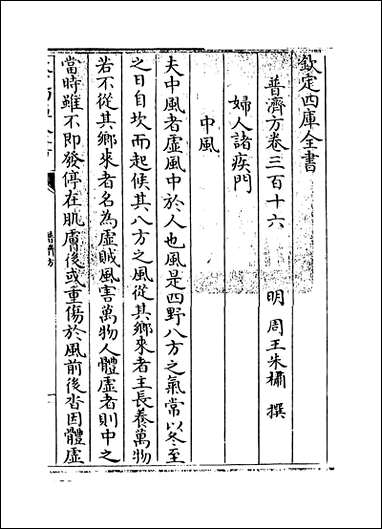 欽定四庫全書
普濟方卷三百十六
明 周王朱橚 撰
婦人諸疾門
中風
夫中風者虛風中於人也風是四野八方之氣常以冬至
之日自坎而起候其八方之風從其鄉來者主長養萬物
若不從其鄉來者名為虛賊風害萬物人體虛者則中之
當時雖不即發停在肌膚後或重傷於風前後沓因體虛
普濟方